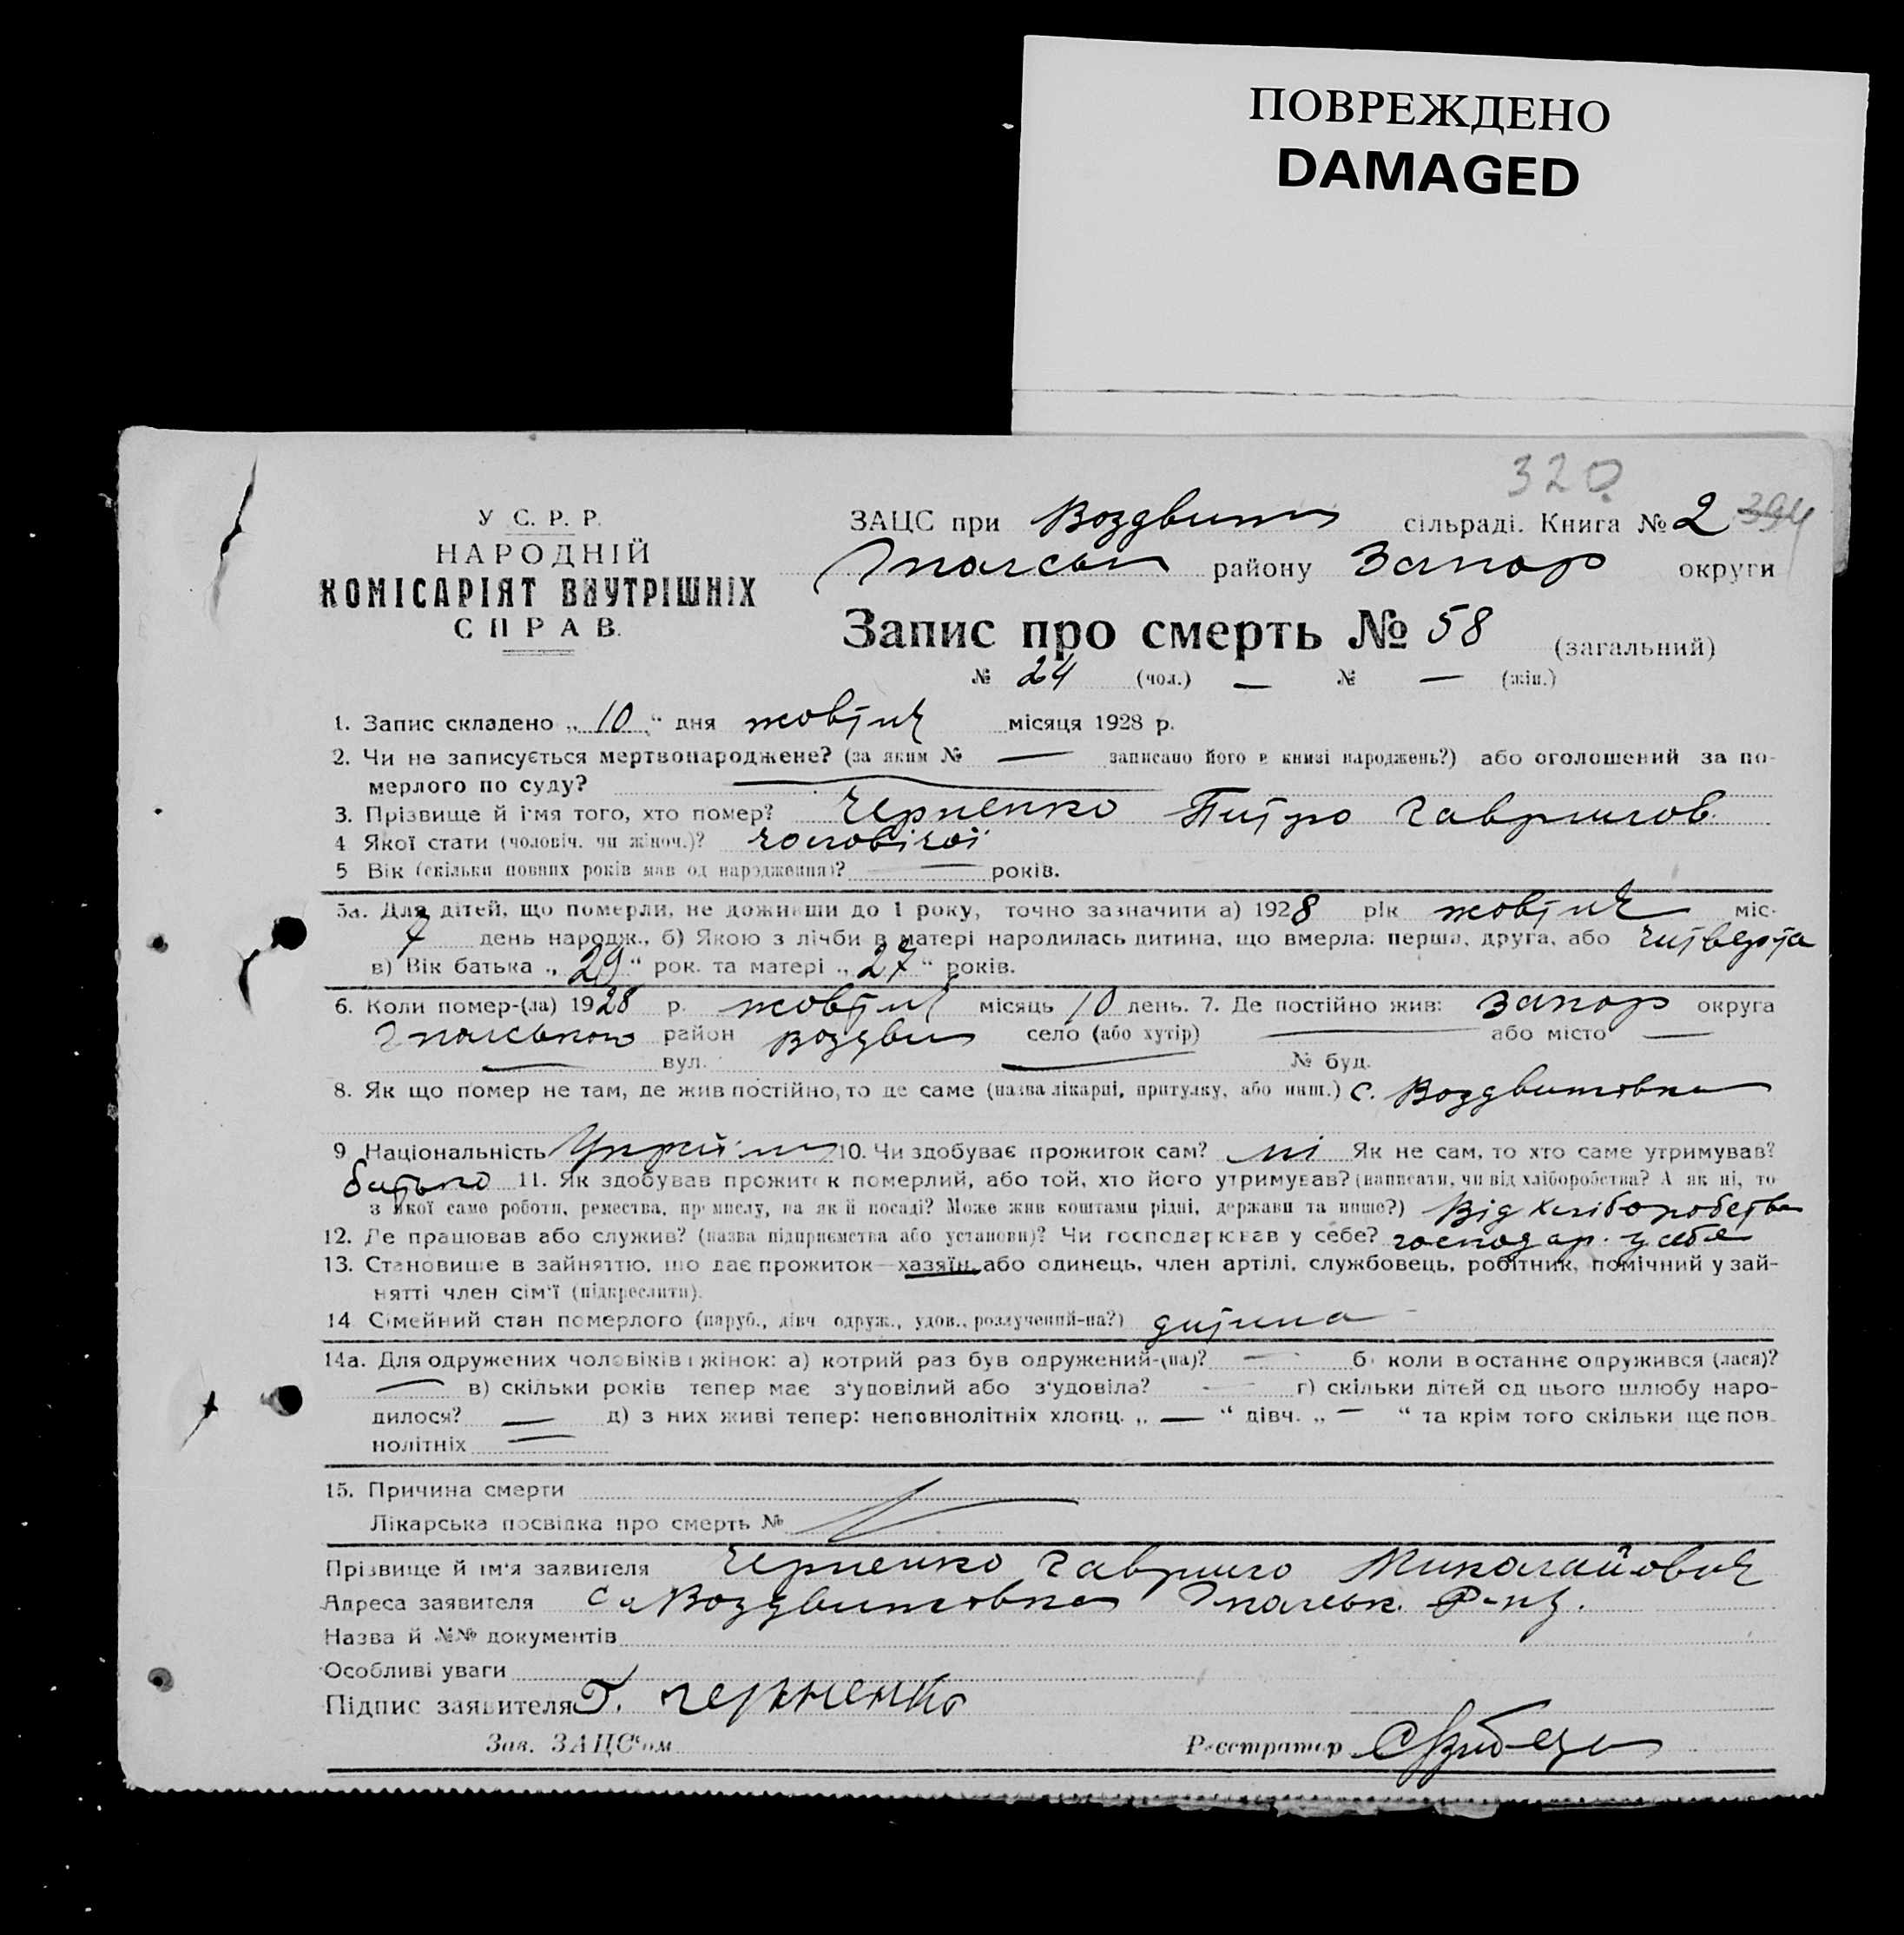 ПОВРЕЖДЕНО
DAMAGED
320
У С. Р. Р.
НАРОДНІЙ
КОМІСАРІЯТ ВНУТРІШНІХ
СПРАВ.
ЗАЦС при Воздвиж сільраді. Книга № 2 394
району Запор округи
Запис про смерть № 58 (загальний)
№ 24 (чол.) — № — (жін.)
1. Запис складено „ 10 “ дня жовтня місяця 1928 р.
2. Чи не записується мертвонароджене? (за яким № — записано його в книзі народжень?) або оголошений за по-
мерлого по суду? —
3. Прізвище й ім'я того, хто помер? Черненко Питро Гаврилов.
4 Якої стати (чоловіч. чи жіноч.)? чоловічої
5 Вік (скільки повних років мав од народження)? — років.
5а. Для дітей, що померли, не доживши до 1 року, точно зазначити а) 1928 рік жовтня міс.
7 день народж., б) Якою з лічби в матері народилась дитина, що вмерла: перша, друга, або читверта
в) Вік батька „ 29 “ рок. та матері „ 27 “ років.
6. Коли помер-(ла) 1928 р. жовтня місяць 10 день. 7. Де постійно жив: Запор округа
район Воздви село (або хутір) — або місто —
— вул. — № буд.
8. Як що помер не там, де жив постійно, то де саме (назва лікарні, притулку, або инш.) с. Воздвижовка
9 Національність Україн 10. Чи здобуває прожиток сам? ні Як не сам, то хто саме утримував?
батько 11. Як здобував прожиток померлий, або той, хто його утримував? (написати, чи від хліборобства? А як ні, то
з якої саме роботи, ремества, промислу, на якій посаді? Може жив коштами рідні, держави та инше?) Від хліборобства
12. Де працював або служив? (назва підприємства або установи)? Чи господарював у себе? господар. у себе
13. Становище в зайняттю, що дає прожиток—хазяїн, або одинець, член артілі, службовець, робітник, помічний у зай-
нятті член сім'ї (підкреслити).
14 Сімейний стан померлого (паруб., дівч одруж., удов., розлучений-на?) дитина
14а. Для одружених чоловіків і жінок: а) котрий раз був одружений-(на)? — б) коли востаннє одружився (лася)?
— в) скільки років тепер має з'удовілий або з'удовіла? — г) скільки дітей од цього шлюбу наро-
дилося? — д) з них живі тепер: неповнолітніх хлопц. „ — “ дівч. „ — “ та крім того скільки ще пов-
нолітніх —
15. Причина смерти
Лікарська посвідка про смерть №
Прізвище й ім'я заявителя Черненко Гаврило Миколайович
Адреса заявителя с. Воздвижовка
Назва й №№ документів
Особливі уваги
Підпис заявителя Г. Черненко
Зав. ЗАЦС'ом Реєстратор